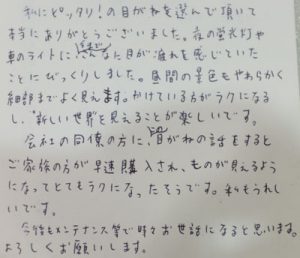 私にピッタリ!の目がねを選んで頂いて
本当にありがとうございました。夜の蛍光灯や
車のライトにこんなにまで目が疲れを感じていた
ことにびっくりしました。昼間の景色もやわらかく
細部までよく見えます。かけている方がラクになる
し、新しい世界を見えることが楽しいです。
会社の同僚の方に、この目がねの話をすると
ご家族の方が早速購入され、ものが見えるよう
になってとてもラクになったそうです。私もうれし
いです。
今後もメンテナンス等で時々お世話になると思います。
よろしくお願いします。